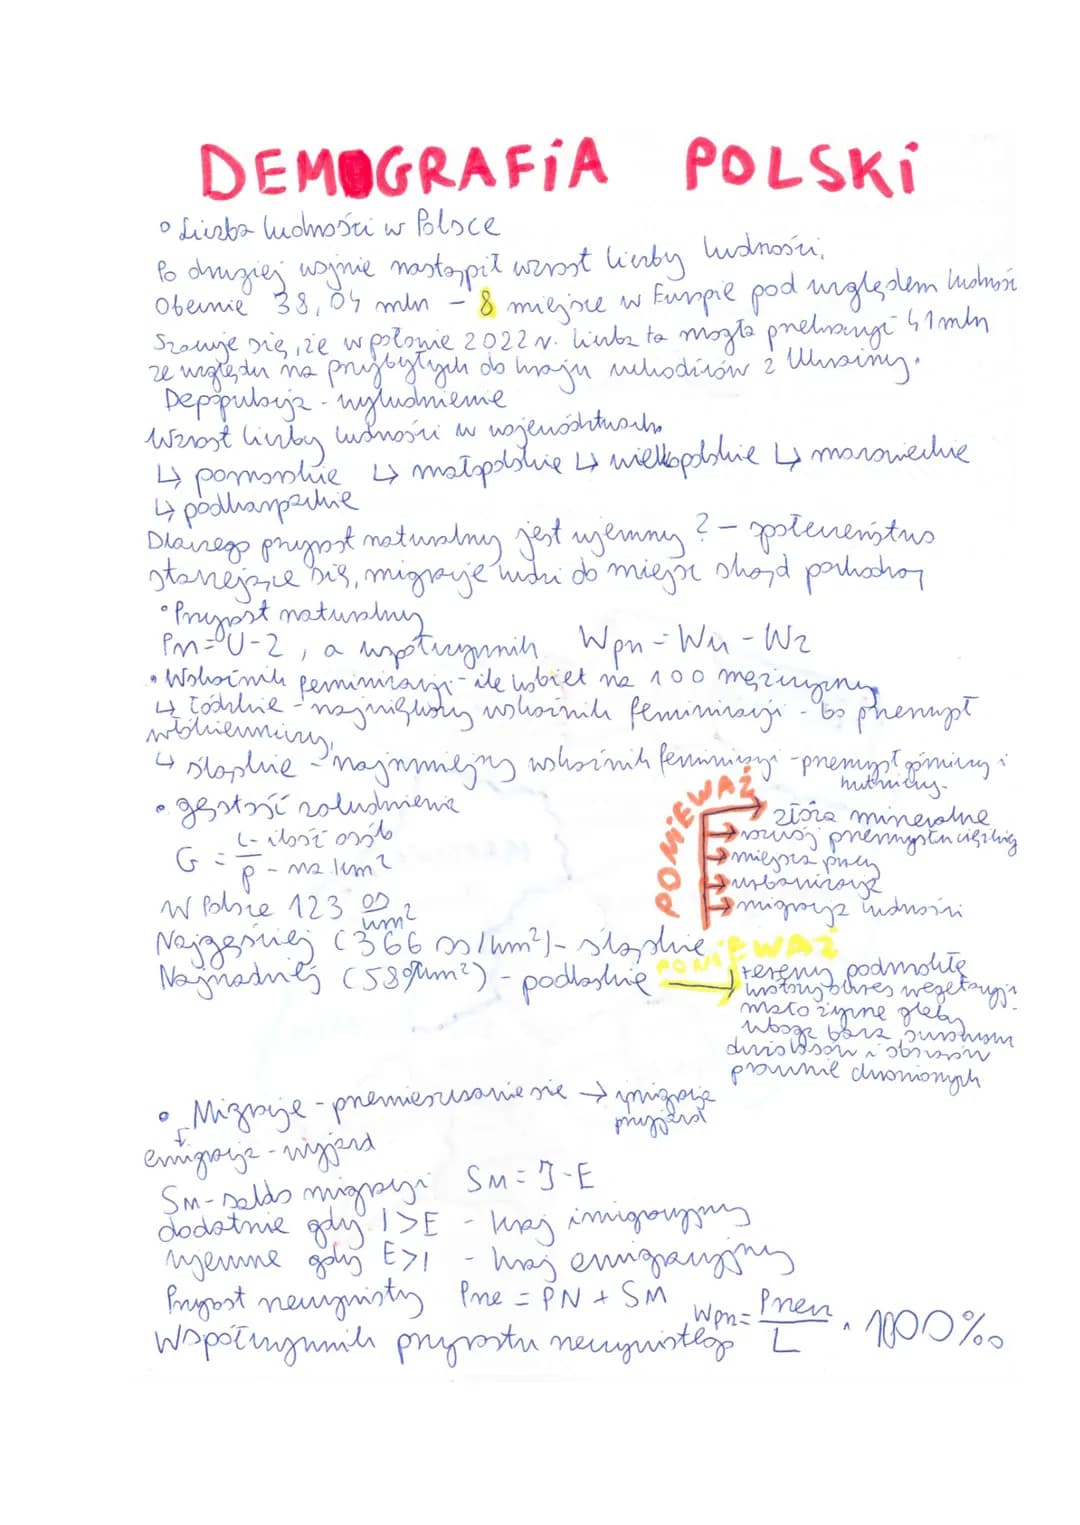 DEMOGRAFiA POLSKi
• Liczba ludności w Polsce
Po drugiej wojnie nastąpił wzrost liczby ludności,
Obecnie 38,04 mln – 8 miejsce w Europie pod względem ludności
Szacuje się, że w połowie 2022 r. liczba ta mogła przekroczyć 41 mln
ze względu na przybyłych do kraju uchodźców z Ukrainy.
Depopulacja - wyludnienie
Wzrost liczby ludności w województwach
↳ pomorskie ↳ małopolskie ↳ wielkopolskie ↳ mazowieckie
↳ podkarpackie
Dlaczego przyrost naturalny jest ujemny? – społeczeństwo
starzejące się, migracje ludzi do miejsc skąd pochodzą
• Przyrost naturalny
Pn = U-Z, a współczynnik Wpn = Wu - Wz
• Wskaźnik feminizacji - ile kobiet na 100 mężczyzn
↳ łódzkie - największy wskaźnik feminizacji - bo przemysł
włókienniczy,
↳ śląskie - najmniejszy wskaźnik feminizacji - przemysł górniczy i
hutniczy.
• gęstość zaludnienia
G = L - ilość osób
P - na km²
W Polsce 123 os/km²
Najgęściej (366 os/km²) - śląskie
PONiEWAŻ
złoża mineralne
rozwój przemysłu ciężkiego
miejsca pracy
urbanizacja
migracja ludności
Najrzadziej (58 os/km²) - podlaskie
PONiEWAŻ
tereny podmokłe
krótszy okres wegetacyjny
mało żyzne gleby
uboga baza surowcowa
dużo lasów i obszarów
prawnie chronionych
• Migracje - przemieszczanie się → imigracja
przyjazd
emigracja - wyjazd
SM - saldo migracji SM = I - E
dodatnie gdy I > E - kraj imigracyjny
ujemne gdy E > I - kraj emigracyjny
Przyrost rzeczywisty Prze = PN + SM
Współczynnik przyrostu rzeczywistego Wpn = Przeu / L · 1000‰